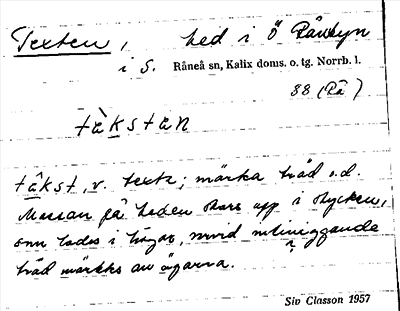 Texten, hed i Ö Rånbyn
i S. Råneå sn, Kalix doms. o. tg. Norrb. l.
88 (Rå)
tàkstən
tâkst, v. texta; märka träd o.d.
Massan på heden skars upp i stycken,
som lades i högar, invid
träd märkts av ägarna.
Siv Classon 1957